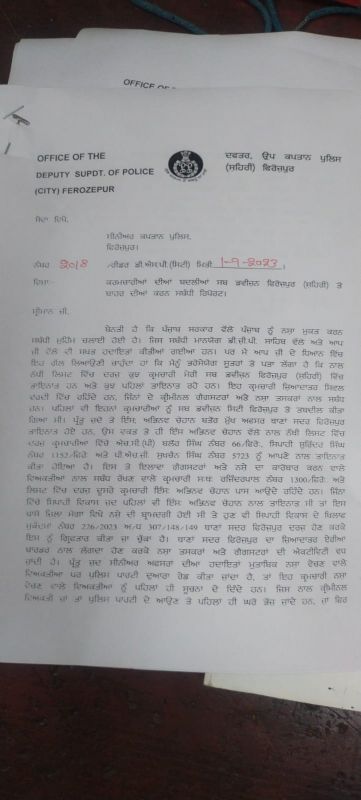 OFFICE OF
OFFICE OF THE
DEPUTY SUPDT. OF POLICE
(CITY) FEROZEPUR
ਦਫਤਰ, ਉਪ ਕਪਤਾਨ ਪੁਲਿਸ
(ਸ਼ਹਿਰੀ) ਫਿਰੋਜ਼ਪੁਰ
ਸੇਵਾ ਵਿਖੇ,
ਸੀਨੀਅਰ ਕਪਤਾਨ ਪੁਲਿਸ,
ਫਿਰੋਜ਼ਪੁਰ।
ਨੰਬਰ 2018 /ਰੀਡਰ ਡੀ.ਐਸ.ਪੀ.(ਸਿਟੀ) ਮਿਤੀ 1-9-2023,
ਵਿਸ਼ਾ:- ਕਰਮਚਾਰੀਆਂ ਦੀਆਂ ਬਦਲੀਆਂ ਸਬ ਡਵੀਜ਼ਨ ਫਿਰੋਜ਼ਪੁਰ (ਸ਼ਹਿਰੀ) ਤੋਂ
ਬਾਹਰ ਦੀਆਂ ਕਰਨ ਸਬੰਧੀ ਰਿਪੋਰਟ।
ਸ੍ਰੀਮਾਨ ਜੀ,
ਬੇਨਤੀ ਹੈ ਕਿ ਪੰਜਾਬ ਸਰਕਾਰ ਵੱਲੋਂ ਪੰਜਾਬ ਨੂੰ ਨਸ਼ਾ ਮੁਕਤ ਕਰਨ
ਸਬੰਧੀ ਮੁਹਿੰਮ ਚਲਾਈ ਹੋਈ ਹੈ। ਜਿਸ ਸਬੰਧੀ ਮਾਨਯੋਗ ਡੀ.ਜੀ.ਪੀ. ਸਾਹਿਬ ਵੱਲੋਂ ਅਤੇ ਆਪ
ਜੀ ਵੱਲੋਂ ਵੀ ਸਖਤ ਹਦਾਇਤਾਂ ਕੀਤੀਆਂ ਗਈਆਂ ਹਨ। ਪਰ ਮੈਂ ਆਪ ਜੀ ਦੇ ਧਿਆਨ ਵਿੱਚ
ਇਹ ਗੱਲ ਲਿਆਉਣੀ ਚਾਹੁੰਦਾ ਹਾਂ ਕਿ ਮੈਨੂੰ ਭਰੋਸੇਯੋਗ ਸੂਤਰਾਂ ਤੋਂ ਪਤਾ ਲੱਗਾ ਹੈ ਕਿ ਨਾਲ
ਨੱਥੀ ਲਿਸਟ ਵਿੱਚ ਦਰਜ ਕੁਝ ਕ੍ਰਮਚਾਰੀ ਮੇਰੀ ਸਬ ਡਵੀਜ਼ਨ ਫਿਰੋਜ਼ਪੁਰ (ਸ਼ਹਿਰੀ) ਵਿੱਚ
ਤਾਇਨਾਤ ਹਨ ਅਤੇ ਕੁਝ ਪਹਿਲਾਂ ਤਾਇਨਾਤ ਰਹੇ ਹਨ। ਇਹ ਕ੍ਰਮਚਾਰੀ ਜ਼ਿਆਦਾਤਰ ਸਿਵਲ
ਵਰਦੀ ਵਿੱਚ ਰਹਿੰਦੇ ਹਨ, ਜਿੰਨਾਂ ਦੇ ਕ੍ਰੀਮੀਨਲ ਗੈਂਗਸਟਰਾਂ ਅਤੇ ਨਸ਼ਾ ਤਸਕਰਾਂ ਨਾਲ ਸਬੰਧ
ਹਨ। ਪਹਿਲਾਂ ਵੀ ਇਹਨਾਂ ਕ੍ਰਮਚਾਰੀਆਂ ਨੂੰ ਸਬ ਡਵੀਜ਼ਨ ਸਿਟੀ ਫਿਰੋਜ਼ਪੁਰ ਤੋਂ ਤਬਦੀਲ ਕੀਤਾ
ਗਿਆ ਸੀ। ਪ੍ਰੰਤੂ ਜਦੋਂ ਤੋਂ ਇੰਸ: ਅਭਿਨਵ ਚੌਹਾਨ ਬਤੌਰ ਮੁੱਖ ਅਫਸਰ ਥਾਣਾ ਸਦਰ ਫਿਰੋਜ਼ਪੁਰ
ਤਾਇਨਾਤ ਹੋਏ ਹਨ, ਉਸ ਵਕਤ ਤੋਂ ਹੀ ਇੰਸ: ਅਭਿਨਵ ਚੌਹਾਨ ਵੱਲੋਂ ਨਾਲ ਨੱਥੀ ਲਿਸਟ ਵਿੱਚ
ਦਰਜ ਕ੍ਰਮਚਾਰੀਆਂ ਵਿੱਚੋਂ ਐਚ.ਸੀ (ਪੀ) ਬਲੌਰ ਸਿੰਘ ਨੰਬਰ 66/ਫਿਰੋ:, ਸਿਪਾਹੀ ਸੁਰਿੰਦਰ ਸਿੰਘ
ਨੰਬਰ 1152/ਫਿਰੋ: ਅਤੇ ਪੀ.ਐਚ.ਜੀ. ਸੁਖਚੈਨ ਸਿੰਘ ਨੰਬਰ 5723 ਨੂੰ ਆਪਣੇ ਨਾਲ ਤਾਇਨਾਤ
ਕੀਤਾ ਹੋਇਆ ਹੈ। ਇਸ ਤੋਂ ਇਲਾਵਾ ਗੈਂਗਸਟਰਾਂ ਅਤੇ ਨਸ਼ੇ ਦਾ ਕਾਰੋਬਾਰ ਕਰਨ ਵਾਲੇ
ਵਿਅਕਤੀਆਂ ਨਾਲ ਸਬੰਧ ਰੱਖਣ ਵਾਲੇ ਕ੍ਰਮਚਾਰੀ ਸ:ਥ: ਰਜਿੰਦਰਪਾਲ ਨੰਬਰ 1300/ਫਿਰੋ: ਅਤੇ
ਲਿਸਟ ਵਿੱਚ ਦਰਜ ਦੂਸਰੇ ਕ੍ਰਮਚਾਰੀ ਇੰਸ: ਅਭਿਨਵ ਚੌਹਾਨ ਪਾਸ ਆਉਂਦੇ ਰਹਿੰਦੇ ਹਨ। ਜਿੰਨਾਂ
ਵਿੱਚੋਂ ਸਿਪਾਹੀ ਵਿਕਾਸ ਜਦ ਪਹਿਲਾਂ ਵੀ ਇੰਸ: ਅਭਿਨਵ ਚੌਹਾਨ ਨਾਲ ਤਾਇਨਾਤ ਸੀ ਤਾਂ ਇਸ
ਪਾਸੋਂ ਜਿਲਾ ਮੋਗਾ ਵਿਖੇ ਨਸ਼ੇ ਦੀ ਬ੍ਰਾਮਦਗੀ ਹੋਈ ਸੀ ਤੇ ਹੁਣ ਵੀ ਸਿਪਾਹੀ ਵਿਕਾਸ ਦੇ ਖਿਲਾਫ
ਮੁਕੱਦਮਾ ਨੰਬਰ 226/2023 ਅ/ਧ 307/148/149 ਥਾਣਾ ਸਦਰ ਫਿਰੋਜ਼ਪੁਰ ਦਰਜ ਹੋਣ ਕਰਕੇ
ਇਸ ਨੂੰ ਗ੍ਰਿਫਤਾਰ ਕੀਤਾ ਜਾ ਚੁੱਕਾ ਹੈ। ਥਾਣਾ ਸਦਰ ਫਿਰੋਜ਼ਪੁਰ ਦਾ ਜ਼ਿਆਦਾਤਰ ਏਰੀਆ
ਬਾਰਡਰ ਨਾਲ ਲੱਗਦਾ ਹੋਣ ਕਰਕੇ ਨਸ਼ਾ ਤਸਕਰਾਂ ਅਤੇ ਗੈਂਗਸਟਰਾਂ ਦੀ ਐਕਟੀਵਿਟੀ ਵਧ
ਜਾਂਦੀ ਹੈ। ਪ੍ਰੰਤੂ ਜਦ ਸੀਨੀਅਰ ਅਫਸਰਾਂ ਦੀਆਂ ਹਦਾਇਤਾਂ ਮੁਤਾਬਿਕ ਨਸ਼ਾ ਵੇਚਣ ਵਾਲੇ
ਵਿਅਕਤੀਆਂ ਪਰ ਪੁਲਿਸ ਪਾਰਟੀ ਦੁਆਰਾ ਰੇਡ ਕੀਤਾ ਜਾਂਦਾ ਹੈ, ਤਾਂ ਇਹ ਕ੍ਰਮਚਾਰੀ ਨਸ਼ਾ
ਵੇਚਣ ਵਾਲੇ ਵਿਅਕਤੀਆਂ ਨੂੰ ਪਹਿਲਾਂ ਹੀ ਸੂਚਨਾ ਦੇ ਦਿੰਦੇ ਹਨ। ਜਿਸ ਨਾਲ ਕ੍ਰੀਮੀਨਲ
ਵਿਅਕਤੀ ਜਾਂ ਤਾਂ ਪੁਲਿਸ ਪਾਰਟੀ ਦੇ ਆਉਣ ਤੋਂ ਪਹਿਲਾਂ ਹੀ ਘਰੋਂ ਭੱਜ ਜਾਂਦੇ ਹਨ, ਜਾਂ ਫਿਰ